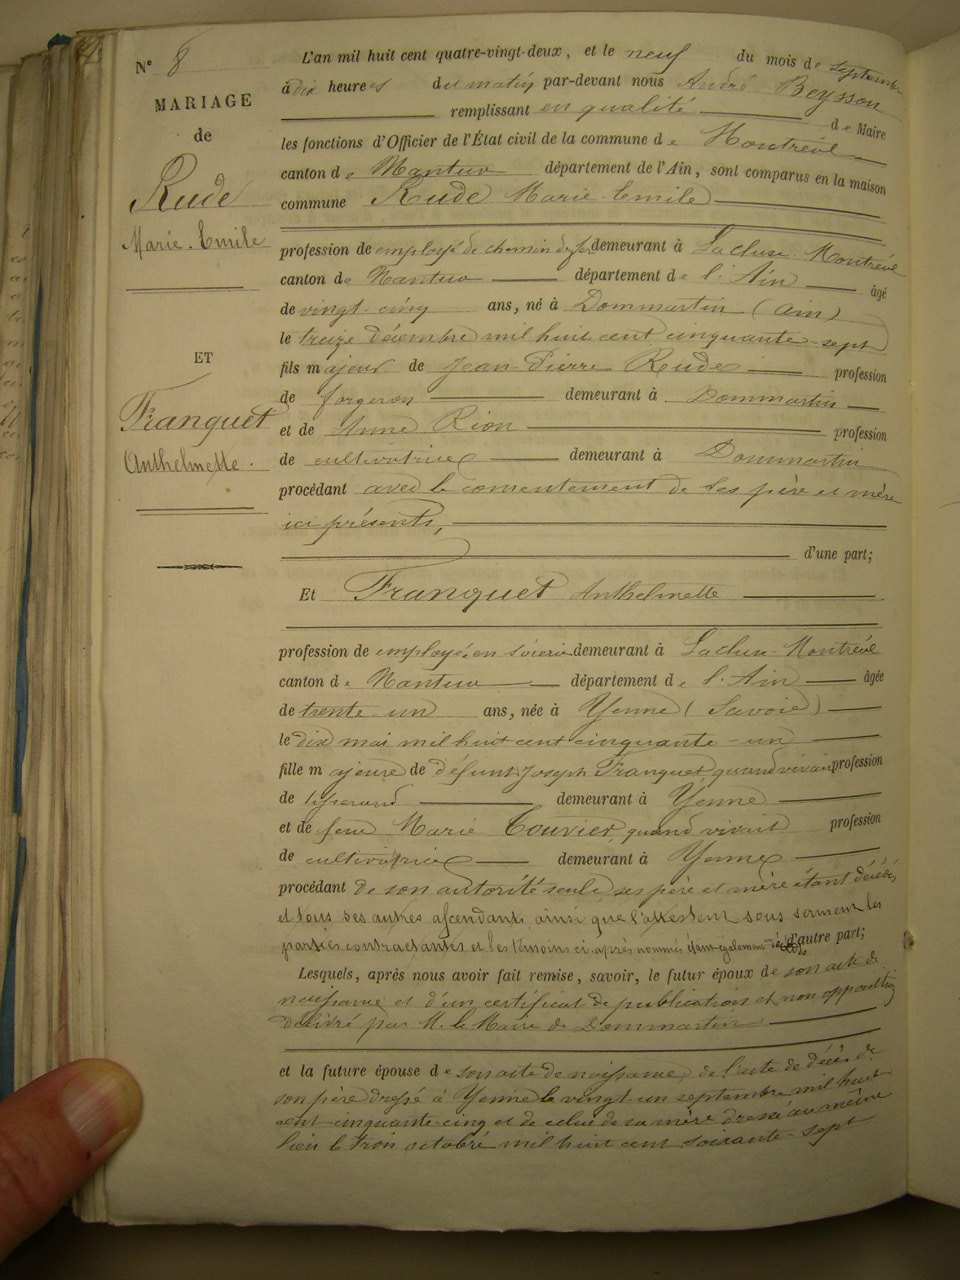 N° 8
MARIAGE
de
Rude
Marie-Emile
ET
Franquet
Anthelmette.
L'an mil huit cent quatre-vingt-deux, et le neuf du mois de septembre
à dix heures du matin par-devant nous André Beysson
remplissant en qualité de Maire
les fonctions d'Officier de l'État civil de la commune de Montréal
canton de Nantua département de l'Ain, sont comparus en la maison
commune Rude Marie-Emile
profession de employé de chemin de fer demeurant à Lacluse-Montréal
canton de Nantua département de l'Ain âgé
de vingt-cinq ans, né à Dommartin (Ain)
le treize décembre mil huit cent cinquante-sept
fils majeur de Jean-Pierre Rude profession
de forgeron demeurant à Dommartin
et de Anne Rion profession
de cultivatrice demeurant à Dommartin
procédant avec le consentement de ses père et mère
ici présents, d'une part;
Et Franquet Anthelmette
profession de employée en soierie demeurant à Lacluse-Montréal
canton de Nantua département de l'Ain âgée
de trente-un ans, née à Yenne (Savoie)
le dix mai mil huit cent cinquante-un
fille majeure de défunt Joseph Franquet, quand vivait profession
de tisserand demeurant à Yenne
et de feue Marie Touvier, quand vivait profession
de cultivatrice demeurant à Yenne
procédant de son autorité seule, ses père et mère étant décédés,
et tous ses autres ascendants ainsi que l'attestent sous serment les
parties contractantes et les témoins ci-après nommés étant également d'autre part;
Lesquels, après nous avoir fait remise, savoir, le futur époux de son acte de
naissance et d'un certificat de publication et non opposition
délivré par M. le Maire de Dommartin
et la future épouse de son acte de naissance, de l'acte de décès de
son père dressé à Yenne le vingt un septembre mil huit
cent cinquante-cinq et de celui de sa mère dressé au même
lieu le trois octobre mil huit cent soixante-sept